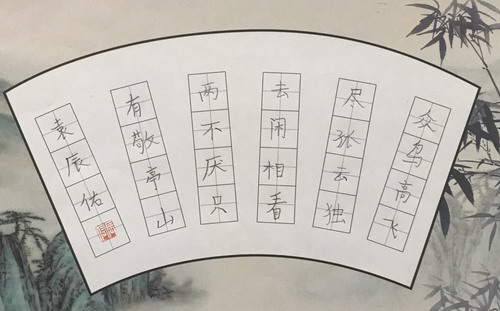 众鸟高飞
尽孤去独
去闲相看
两不厌只
有敬亭山
袁辰佑